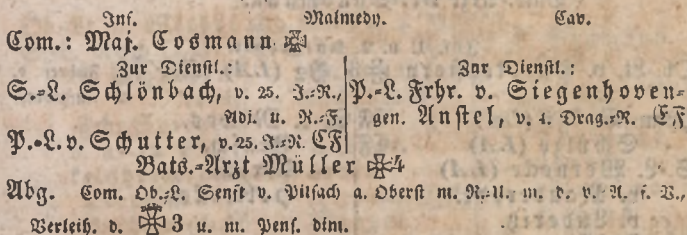 Inf. Malmedy. Cav.
Com.: Maj. Cosmann ✠
Zur Dienstl.:
S.-L. Schlönbach, v. 25. J.-R.,
Adj. u. R.-F.
P.-L. v. Schutter, v. 25. J.-R. EF
Zur Dienstl.:
P.-L. Frhr. v. Siegenhoven-
gen. Anstel, v. 4. Drag.-R. EF
Bats.-Arzt Müller ✠4
Abg. Com. Ob.-L. Senft v. Pilsach a. Oberst m. R.-U. m. d. v. A. f. V.,
Verleih. d. ✠3 u. m. Pens. dim.